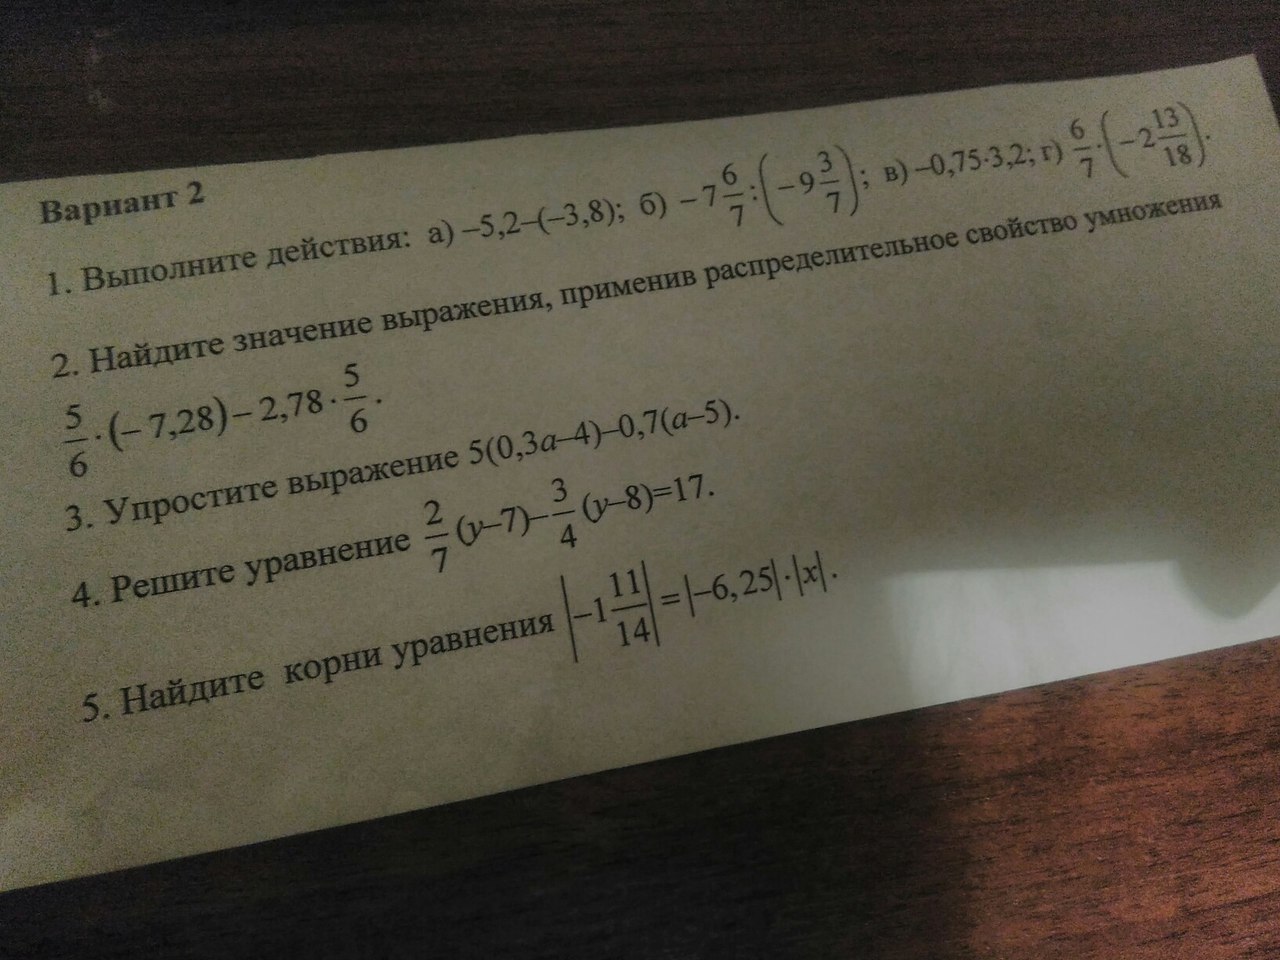 Вариант 2
1. Выполните действия: а) –5,2–(–3,8); б) –7 6/7 : (–9 3/7); в) –0,75·3,2; г) 6/7 · (–2 13/18).
2. Найдите значение выражения, применив распределительное свойство умножения
5/6 · (–7,28) – 2,78 · 5/6.
3. Упростите выражение 5(0,3a–4)–0,7(a–5).
4. Решите уравнение 2/7 (y–7)– 3/4 (y–8)=17.
5. Найдите корни уравнения |–1 11/14| = |–6,25|·|x|.